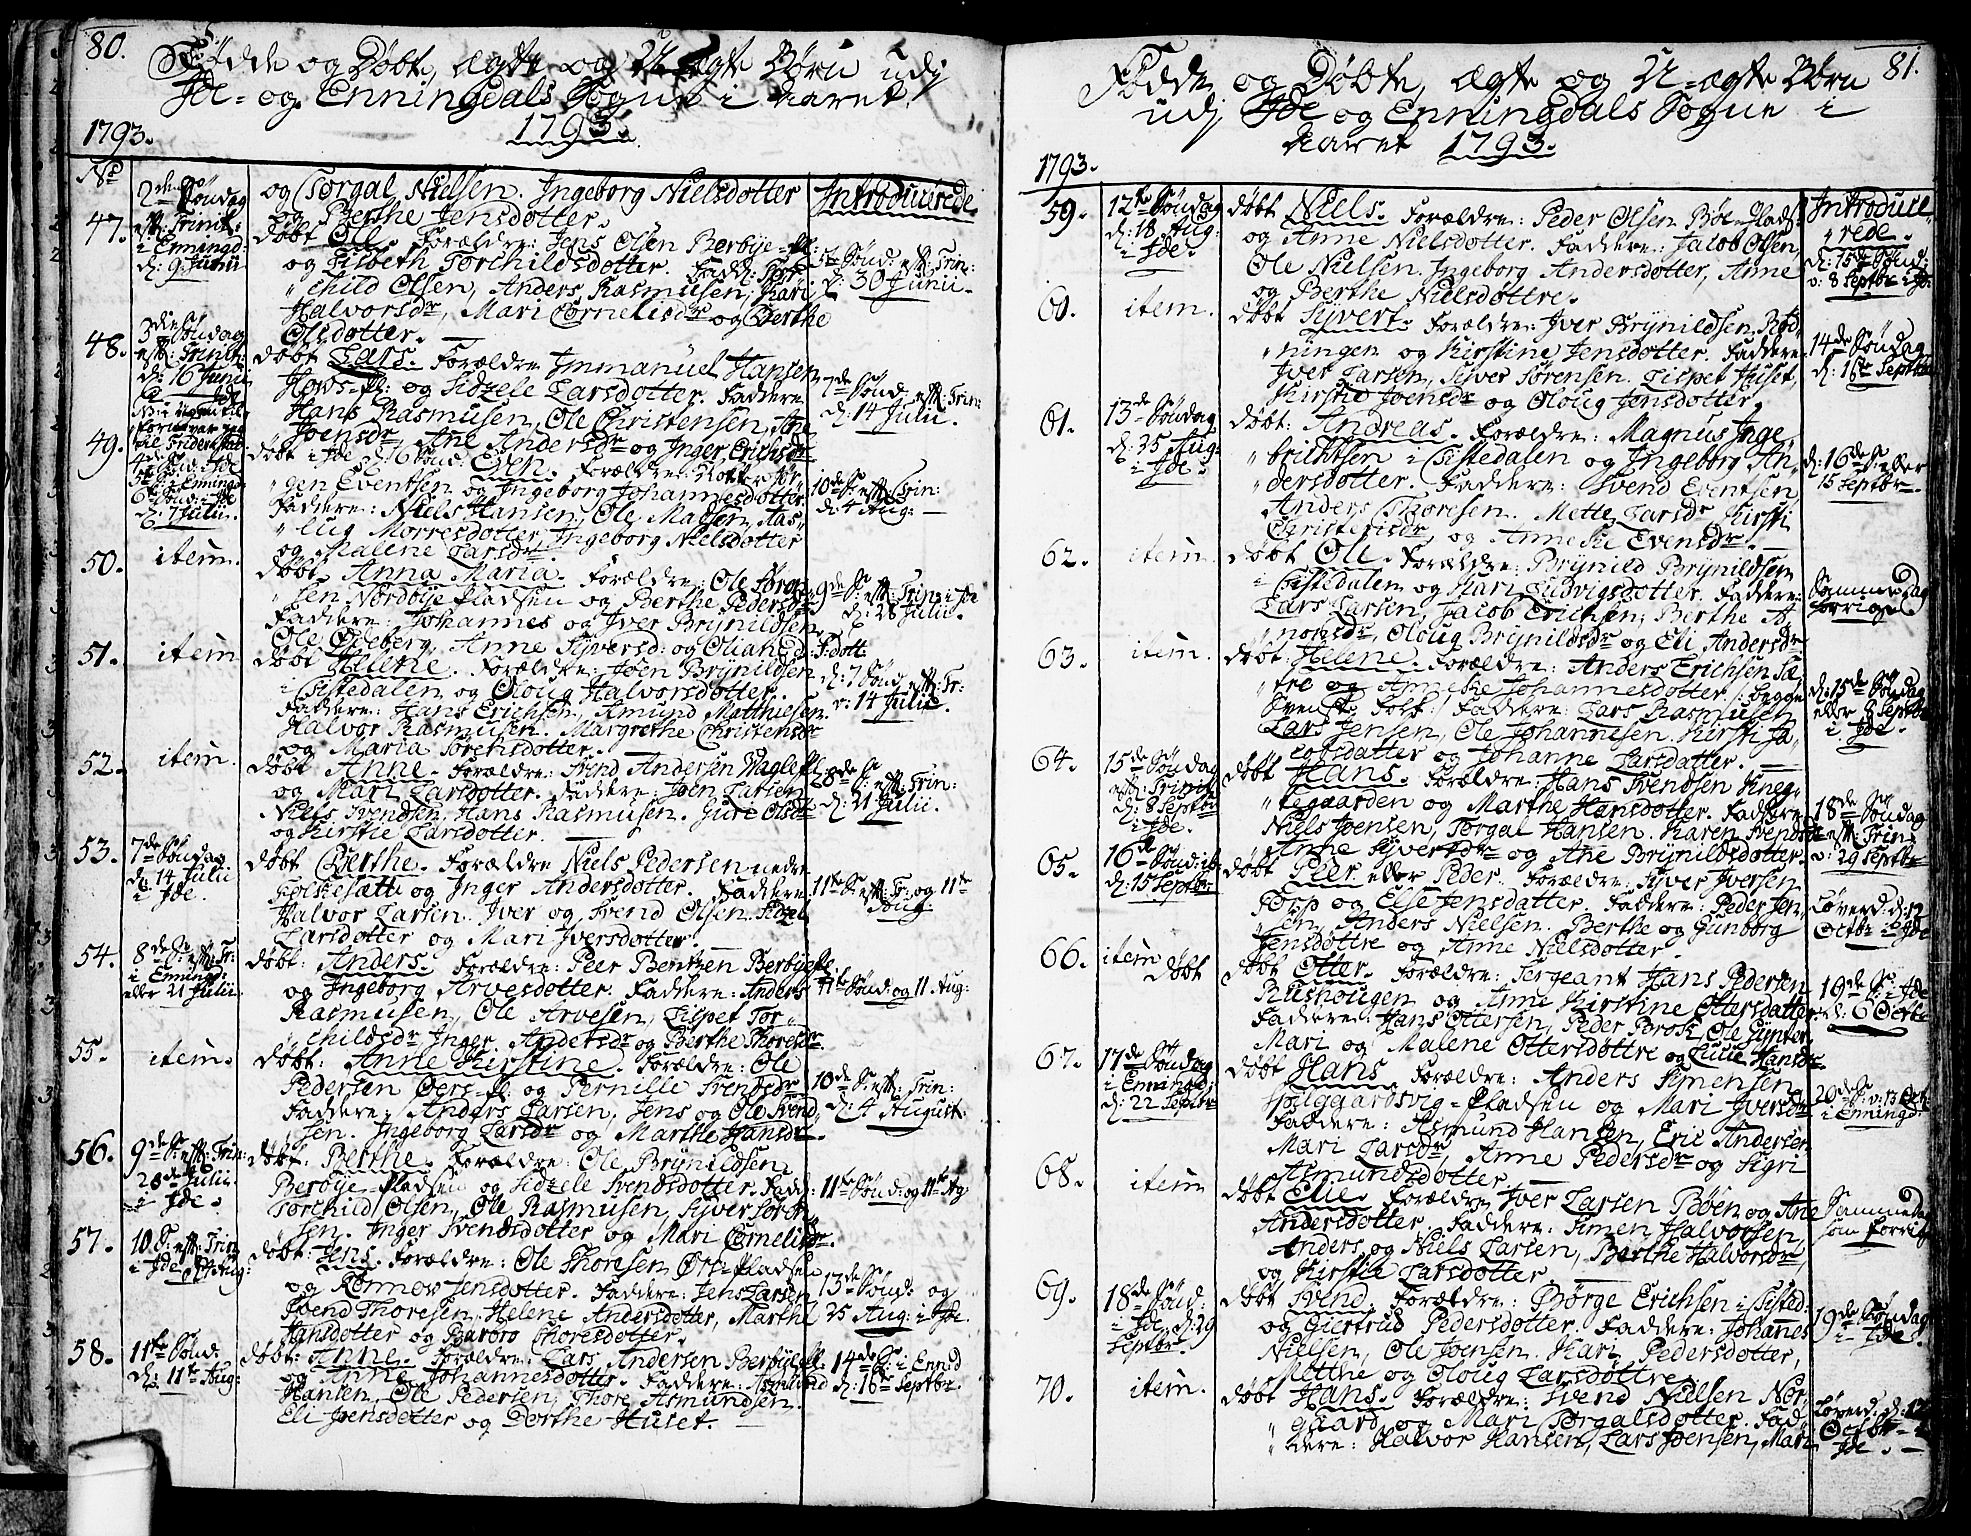 80.
Fødde og Døbte, ægte og U-ægte Børn udj
Jde- og Enningdals Sogne i Aaret
1793.
1793.
No
2den Søndag
eft: Trinit:
i Enningd:
d: 9 Junii
og Torgal Nielsen. Ingeborg Nielsdotter
og Berthe Jensdotter.
Introducerede.
47.
døbt Ole. Forældre: Jens Olsen Berbye-pl:
og Lisbeth Torchildsdotter. Fadd: Tor-
child Olsen, Anders Rasmusen, Kari
Halvorsdr, Mari Cornelisdr og Berthe
Olsdotter.
5te Sønd: eft: Trin:
d: 30 Junii.
48.
3die Søndag
eft: Trinit:
d: 16 Junii
døbt Lars. Forældre Immanuel Hansen
Hovs-pl: og Sidzele Larsdotter. Faddere
Hans Rasmusen, Ole Christensen, Ane
Joensdr, Ane Andersdr og Inger Erichsdr
7de Sønd: eft: Trin:
d: 14 Julii.
49.
4de Sønd: Jde
5te S: i Enningd:
6te Sønd: i Jde
d: 7 Julii.
døbt i Jde 6 Sønd: Even. Forældre:
gen Eventsen og Ingeborg Johannesdotter
Faddere: Niels Hansen, Ole Madsen, Aas-
lug Morresdotter, Ingeborg Nielsdotter
og Malene Larsdr.
10de S: eft: Trin:
d: 4 Aug:
50.
item.
døbt. Anna Maria. Forældre: Ole Jørgen-
sen Nordbye Pladsen og Berthe Pedersdr
Faddere: Johannes og Iver Brynildsen,
Ole Ogeberg, Anne Syversd: og Oliana
9de S: eft: Trin: i Jde
d: 28 Julii.
51.
item
døbt Helene. Forældre: Joen Brynildsen
i Tistedalen og Oloug Halvorsdotter.
Faddere: Hans Erichsen, Amund Matthiesen.
Halvor Rasmusen. Margrethe Christensdr
og Maria Sørensdotter.
d: 7 Sønd eft: Tr:
v: 14 Julii.
52.
item.
døbt Anne. Forældre: Svend Andersen Wagle-pl
og Mari Larsdotter. Faddere: Joen Larsen
Niels Svendsen, Hans Rasmusen. Gure Olsdr
og Kirstie Larsdotter.
8de S: eft: Trin:
d: 21 Julii.
53.
7de Søndag
d: 14 Julii
i Jde.
døbt Berthe. Forældre Niels Pedersen nedre
og Inger Andersdotter. Faddere
Halvor Larsen. Iver og Svend Olsen. Sidzel
Larsdotter og Mari Iversdotter.
11te S: eft: Tr: og 11te
Aug.
54.
8de S: eft: Tr:
i Enningd:
eller 21 Julii.
døbt: Anders. Forældre: Peer Bentzen Berbye-pl.
og Ingeborg Arvesdotter. Faddere: Anders
Rasmusen, Ole Arvesen, Lispet Tor-
childsdr Inger Andersdr og Berthe Thoresdr.
11te Sønd: og 11 Aug:
55.
item.
døbt: Anne Kirstine. Forældre: Ole
Pedersen Øers-pl. og Pernille Svendsdr
Faddere: Anders Larsen, Jens og Ole Svend-
sen. Ingeborg Larsdr og Marthe Hansdr.
10de S: eft: Trin:
d: 4 August.
56.
9de S: eft: Trin:
28de Julii.
i Jde.
døbt: Berthe. Forældre: Ole Brynildsen
Berbye-Pladsen og Sidzele Svendsdotter. Fadd:
Torchild Olsen, Ole Rasmusen, Syver Søren-
sen. Inger Svendsdotter og Mari Cornelisdr.
11te Sønd: og 11te Ag
57.
10. S: eft: Trin
i Jde d: 4 Aug:
døbt: Jens. Forældre: Ole Thoresen Ørs-Pladsen
og Ronnow Jensdotter. Faddere: Jens Larsen
Svend Thoresen, Helene Andersdotter, Marthe
Hansdotter og Barbro Thoresdotter.
13de Sønd: og
25 Aug: i Jde.
58.
11te Sønd:
d: 11te Aug:
døbt: Anne. Forældre: Lars Andersen Berbye-pl.
og Anne Johannesdotter. Faddere: Asmund
Hansen, Ole Pedersen, Thore Asmundsen.
Eli Joensdotter og Dorthe Huset.
14de S: i Enn:d
d: 16te Septbr.
81.
Fødde og Døbte, ægte og U-ægte Børn
udj Jde og Enningdals Sogne i
Aaret 1793.
1793.
59.
12te Søndag
d: 18 Aug:
i Jde.
døbt Niels. Forældre: Peder Olsen Bøe-Plads:
og Anne Nielsdotter. Faddere: Jacob Olsen,
Ole Nielsen. Ingeborg Andersdotter, Anne
og Berthe Nielsdøttre.
Introduce-
rede.
d: 15de Sønd:
v: 8 Septbr i Jd:
60.
item.
døbt Syvert. Forældre: Iver Brynildsen Rød-
ningen og Kirstine Jensdotter. Faddere
Iver Larsen, Syver Sørensen. Lispet Huset,
Kirstie Joensdr og Oloug Jensdotter.
14de Søndag
d: 1ste Septbr
61.
13de Søndag
d: 25 Aug:
i Jde.
døbt: Andreas. Forældre: Magnus Inge-
brichtsen i Tistedalen og Ingeborg An-
dersdotter. Faddere: Svend Eventsen,
Anders Thoresen. Mette Larsdr Kirsti
Christensdr, og Anneke Evensdr.
d: 16de S: eller
15 Septbr.
62.
item.
døbt Ole. Forældre: Brynild Brynildsen
i Tistedalen og Kari Ludvigsdotter. Faddere:
Lars Larsen, Jacob Erichsen, Berthe A-
mondsdr, Oloug Brynildsdr og Eli Andersdr
Samme Dag
forrige
63.
item.
døbt: Helene. Forældre: Anders Erichsen Sæ-
tre og Anneke Johannesdotter /: begge
Svensk Folk :/ Faddere: Lars Rasmusen
Lars Jensen, Ole Johannesen. Kirsti Ja-
cobsdatter og Johanne Larsdatter.
d: 15de Søndag
eller 8 Septbr
i Jde.
64.
15de Søndag
eft: Trinit:
d: 8 Septbr
i Jde.
døbt Hans. Forældre: Hans Svendsen Kneg-
tegaarden og Marthe Hansdotter. Faddere
Niels Joensen, Torgal Hansen. Karen Svendsdr
Anne Syversdr og Ane Brynildsdotter.
18de Søndag
eft: Trin
v: 29 Septbr
65.
16de Sønd: ib
d: 15 Septbr.
døbt Peer eller Peder. Forældre. Syver Iversen
Torp og Else Jensdatter. Faddere: Peder Jen-
sen, Anders Nielsen. Berthe og Gunborg
Jensdøttre og Anne Nielsdotter.
Løverd: d: 12
Octbr i Jde
66.
item
Døbt
døbt Otter. Forældre: Sergeant Hans Pedersen
Rushougen og Anne Kirstine Ottersdatter
Faddere: Hans Ottersen, Peder Brock, Ole Gynter,
Mari og Malene Ottersdøttre og Lucie Hansdr.
19de S: i Jde
d: 6 Octbr
67.
17de Søndag
i Enningd:
d: 22 Septbr
døbt Hans. Forældre: Anders Simensen
Holggardsvig-Pladsen og Mari Iversdr
Faddere: Asmund Hansen, Eric Andersen
Mari Larsdr, Anne Pedersdr og Sigri
Asmundsdotter.
20de S: v: 13 Oct:
i Enningd:
68.
item
døbt Elie. Forældre Iver Larsen Bøen og Ane
Andersdotter. Faddere: Simen Halvorsen,
Anders og Niels Larsen, Berthe Halvorsdr,
og Kirstie Larsdotter
Samme Dag
som forrige
69.
18de Sønd:
i Jde, d: 29
Septbr.
døbt Svend. Forældre: Børge Erichsen i Tisted:
og Giertrud Pedersdotter. Faddere: Johannes
Nielsen, Ole Joensen. Kari Pedersdotter,
Metthe og Oloug Larsdøttre.
19de Søndag
i Jde.
70.
item.
døbt Hans. Forældre: Svend Nielsen Nor-
gaard og Mari Torgalsdotter. Fad-
dere: Halvor Hansen, Lars Joensen, Mari
Løverd: d: 12
Octbr i
Jde.